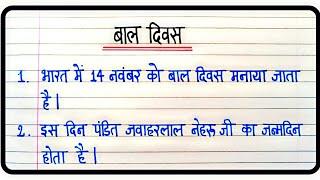 बाल दिवस
1. भारत में 14 नवंबर को बाल दिवस मनाया जाता
है।
2. इस दिन पंडित जवाहरलाल नेहरू जी का जन्मदिन
होता है।